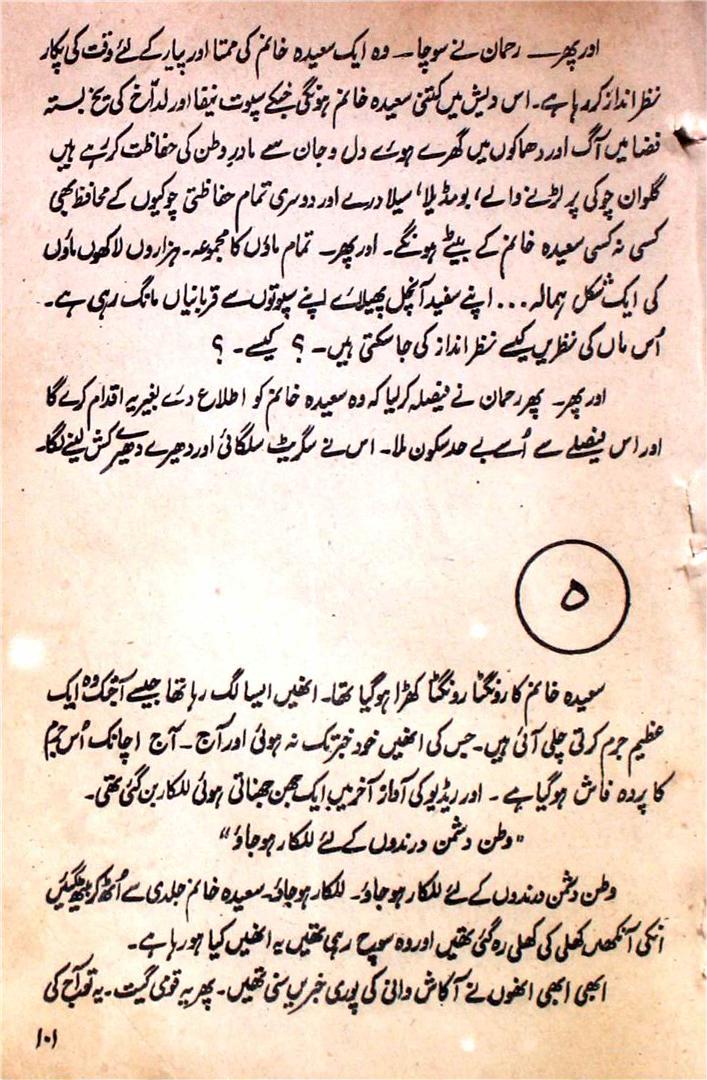 اور پھر — رحمان نے سوچا — وہ ایک سعیدہ خانم کی ممتا اور پیار کے لئے وقت کی پکار
نظر انداز کر رہا ہے۔ اس دیش میں کتنی سعیدہ خانم ہونگی جنکے سپوت نیفا اور لداّخ کی یخ بستہ
فضا میں آگ اور دھماکوں میں گھرے ہوئے دل و جان سے مادرِ وطن کی حفاظت کر رہے ہیں
گلوان چوکی پر لڑنے والے، بومڈیلا، سیلا درے اور دوسری تمام حفاظتی چوکیوں کے محافظ بھی
کسی نہ کسی سعیدہ خانم کے بیٹے ہونگے۔ اور پھر — تمام ماؤں کا مجموعہ۔ ہزاروں لاکھوں ماؤں
کی ایک شکل ہمالہ ... اپنے سفید آنچل پھیلائے اپنے سپوتوں سے قربانیاں مانگ رہی ہے۔
اُس ماں کی نظریں کیسے نظر انداز کی جا سکتی ہیں۔ ؟ کیسے۔ ؟
اور پھر۔ پھر رحمان نے فیصلہ کر لیا کہ وہ سعیدہ خانم کو اطلاع دئے بغیر یہ اقدام کرے گا
اور اس فیصلے سے اُسے بے حد سکون ملا۔ اس نے سگریٹ سلگائی اور دھیرے دھیرے کش لینے لگا۔
۵
سعیدہ خانم کا رونگٹا رونگٹا کھڑا ہو گیا تھا۔ انھیں ایسا لگ رہا تھا جیسے آجتک وہ ایک
عظیم جرم کرتی چلی آئی ہیں۔ جس کی انھیں خود خبر تک نہ ہوئی اور آج۔ آج اچانک اُس جرم
کا پردہ فاش ہو گیا ہے۔ اور ریڈیو کی آواز آخر میں ایک جھن جھناتی ہوئی للکار بن گئی تھی۔
"وطن دشمن درندوں کے لئے للکار ہو جاؤ"
وطن دشمن درندوں کے لئے للکار ہو جاؤ۔ للکار ہو جاؤ۔ سعیدہ خانم جلدی سے اُٹھ کر بیٹھ گئیں
انکی آنکھیں کھلی کی کھلی رہ گئی تھیں اور وہ سوچ رہی تھیں یہ انھیں کیا ہو رہا ہے۔
ابھی ابھی انھوں نے آکاش وانی کی پوری خبریں سنی تھیں۔ پھر یہ قومی گیت۔ یہ تو آج کی
۱۰۱